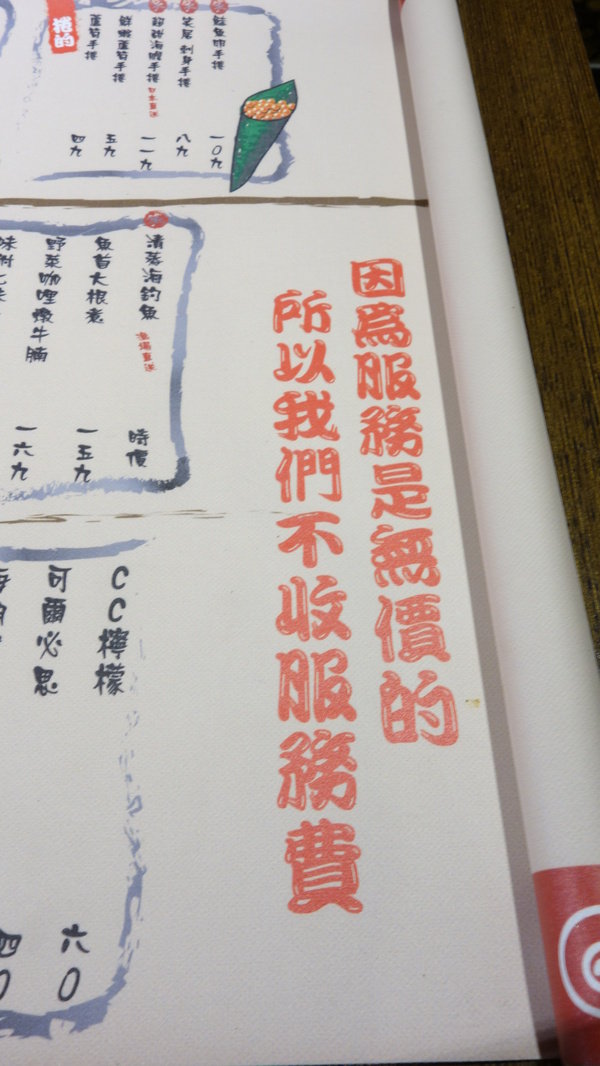 捲的
鮭魚卵手捲
一〇九
炙尾刺身手捲
八九
一一九
鮮蝦蘆筍手捲
五九
蘆筍手捲
四九
清蒸海釣魚
漁場直送
時價
魚首大根煮
一五九
野菜咖哩燉牛腩
一六九
因為服務是無價的
所以我們不收服務費
CC檸檬
六〇
可爾必思
四〇